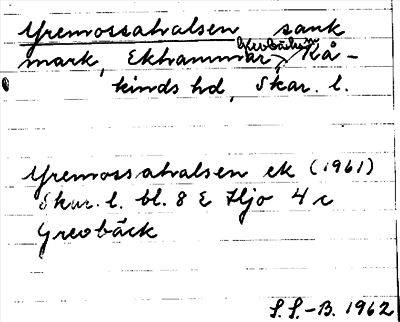 Yremossahalsen sank
mark, Ekhammar, Grevbäcks sn, Kå-
kinds hd, Skar. l.
Yremossahalsen ek (1961)
Skar. l. bl. 8 E Hjo 4 c
Grevbäck
S.S.-B. 1962